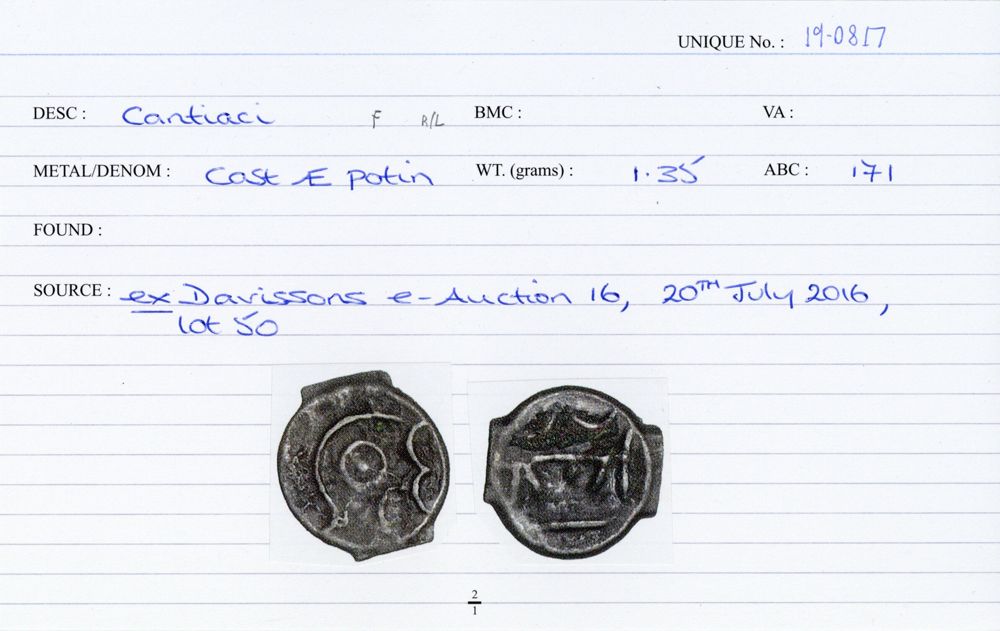 UNIQUE No. : 19-0817
DESC : Cantiaci F R/L BMC : VA :
METAL/DENOM : Cast Æ potin WT. (grams) : 1.35 ABC : 171
FOUND :
SOURCE : ex Davissons e-Auction 16, 20TH July 2016,
lot 50
2
1